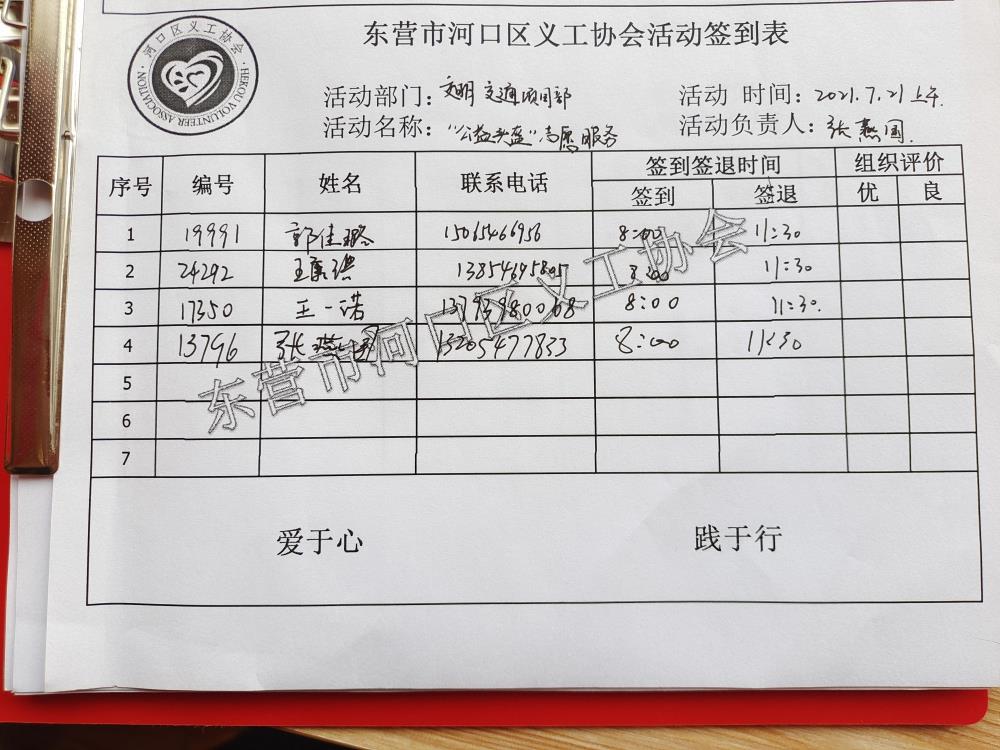 河口区义工协会
HEKOU VOLUNTEER ASSOCIATION
东营市河口区义工协会活动签到表
活动部门：文明交通项目部
活动 时间：2021.7.21上午.
活动名称：“公益头盔”志愿服务
活动负责人：张燕国.
序号 编号 姓名 联系电话 签到签退时间 组织评价
签到 签退 优 良
1 19991 郭佳璐 15065466956 8:00 11:30
2 24292 王 13854695805 8:00 11:30
3 17350 王一诺 13793980068 8:00 11:30.
4 13796 张燕国 13205477833 8:00 11:30
5
6
7
东营市河口区义工协会
爱于心 践于行